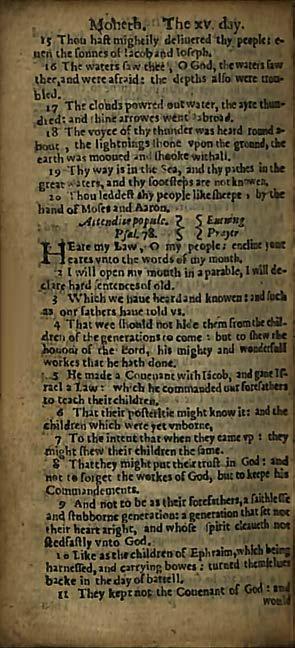 Moneth. The xv. day.
15 Thou hast mightily deliuered thy people: e-
uen the sonnes of Iacob and Ioseph.
16 The waters saw thee, O God, the waters saw
thee, and were afraid: the depths also were trou-
bled.
17 The clouds powred out water, the ayre thun-
dred: and thine arrowes went abroad.
18 The voyce of thy thunder was heard round a-
bout, the lightnings shone vpon the ground, the
earth was mooued and shooke withall.
19 Thy way is in the Sea, and thy pathes in the
great waters, and thy footesteps are not knowen.
20 Thou leddest thy people like sheepe, by the
hand of Moses and Aaron.
Attendite popule. Euening
Psal. 78. Prayer
HEare my Law, O my people: encline your
eares vnto the words of my mouth.
2 I will open my mouth in a parable, I will de-
clare hard sentences of old.
3 Which we haue heard and knowen: and such
as our fathers haue told vs.
4 That wee should not hide them from the chil-
dren of the generations to come: but to shew the
honour of the Lord, his mighty and wonderfull
workes that he hath done.
5 He made a Couenant with Iacob, and gaue Is-
rael a Law: which he commanded our forefathers
to teach their children.
6 That their posteritie might know it: and the
children which were yet vnborne,
7 To the intent that when they came vp: they
might shew their children the same.
8 That they might put their trust in God: and
not to forget the workes of God, but to keepe his
Commandements.
9 And not to be as their forefathers, a faithlesse
and stubborne generation: a generation that set not
their heart aright, and whose spirit cleaueth not
stedfastly vnto God.
10 Like as the children of Ephraim, which being
harnessed, and carrying bowes: turned themselues
backe in the day of battell.
11 They kept not the Couenant of God: and
would